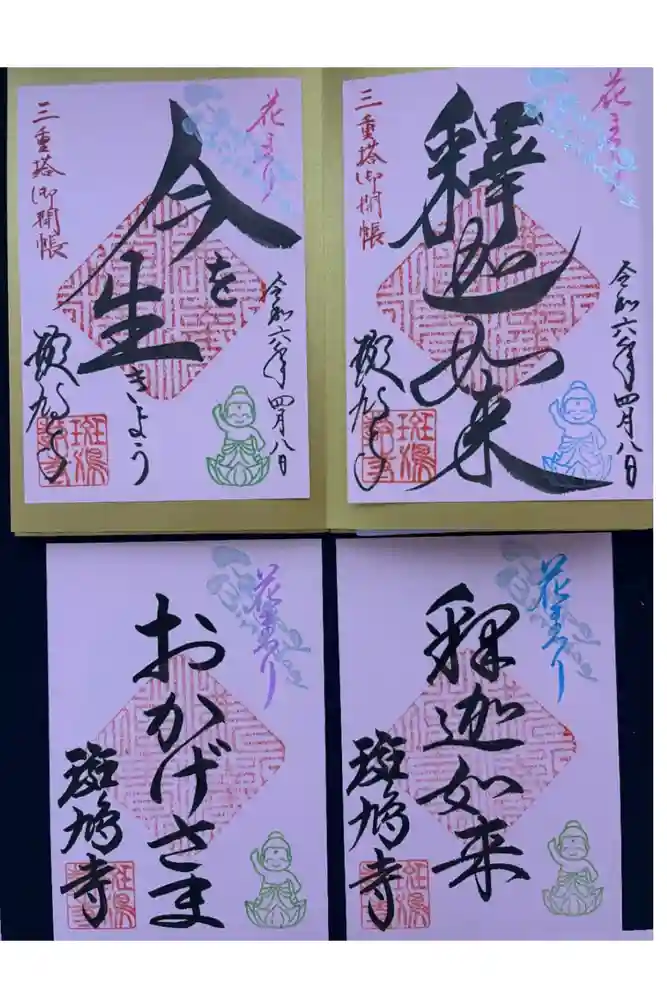 花まつり
釋迦如来
三重塔御開帳
令和六年四月八日
斑鳩寺
花まつり
今を
生きよう
三重塔御開帳
令和六年四月八日
斑鳩寺
花まつり
釈迦如来
斑鳩寺
花まつり
おかげさま
斑鳩寺